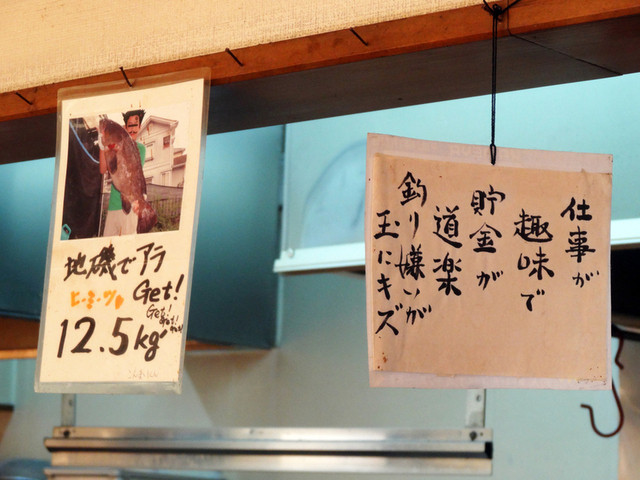 地磯でアラ
ヒ・ミ・ツ
Get!
Get!
Get!
12.5kg
仕事が
趣味で
貯金が
道楽
釣り嫌いが
玉にキズ